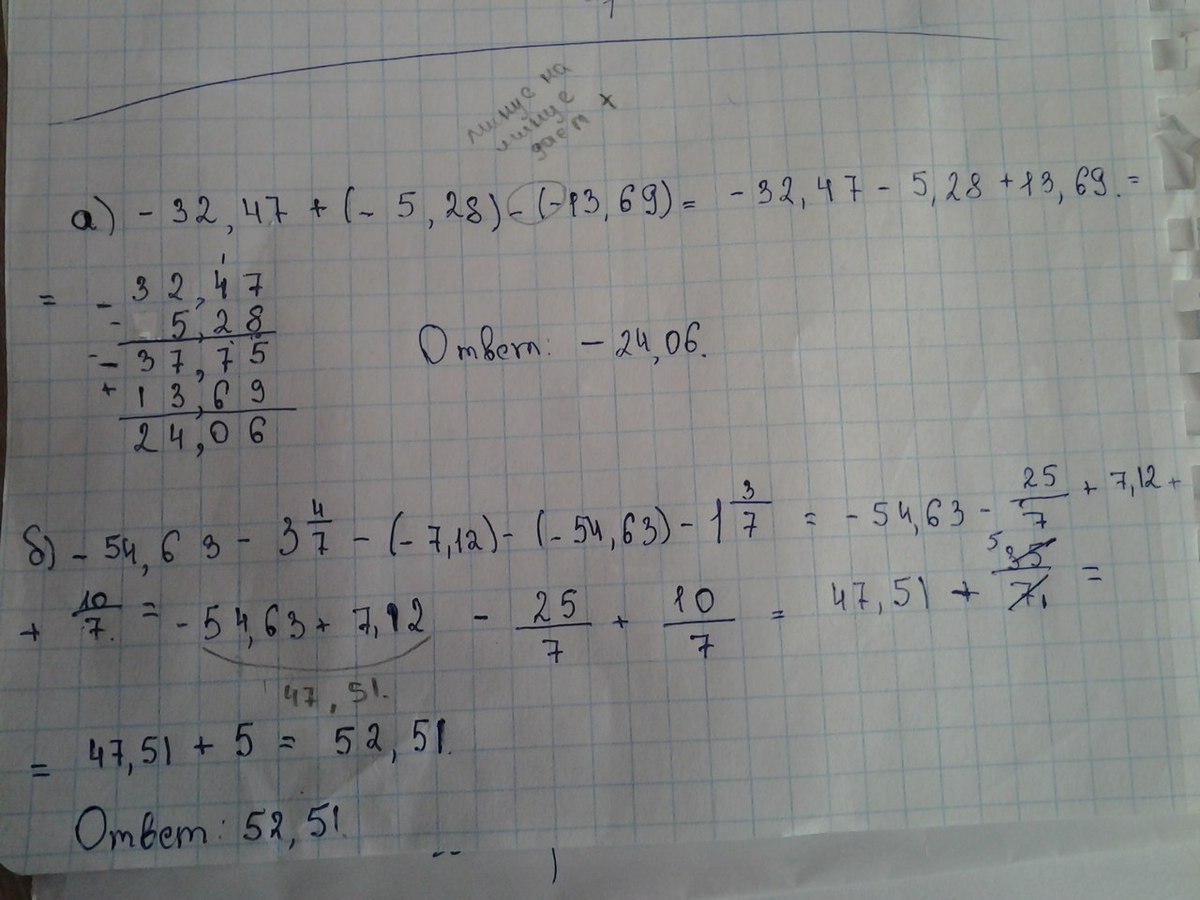 минус на
минус
дает +
а) - 32,47 + (- 5,28) - (-13,69) = - 32,47 - 5,28 + 13,69. =
= - 32,47
- 5,28
- 37,75
+ 13,69
24,06
Ответ: - 24,06.
б) - 54,63 - 3 4/7 - (- 7,12) - (- 54,63) - 1 3/7 = - 54,63 - 25/7 + 7,12 +
+ 10/7. = - 54,63 + 7,12 - 25/7 + 10/7 = 47,51 + 5 35/7 =
47,51.
= 47,51 + 5 = 52,51.
Ответ: 52,51.